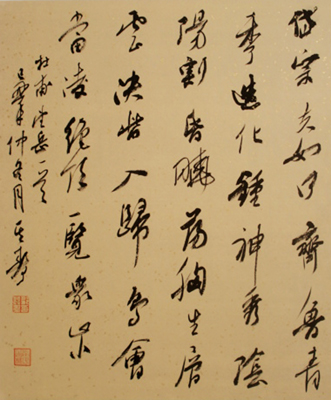 岱宗夫如何齊魯青
未了造化鍾神秀陰
陽割昏曉蕩胸生層
雲決眥入歸鳥會
當凌絕頂一覽衆山小
杜甫望岳一首
仲冬月